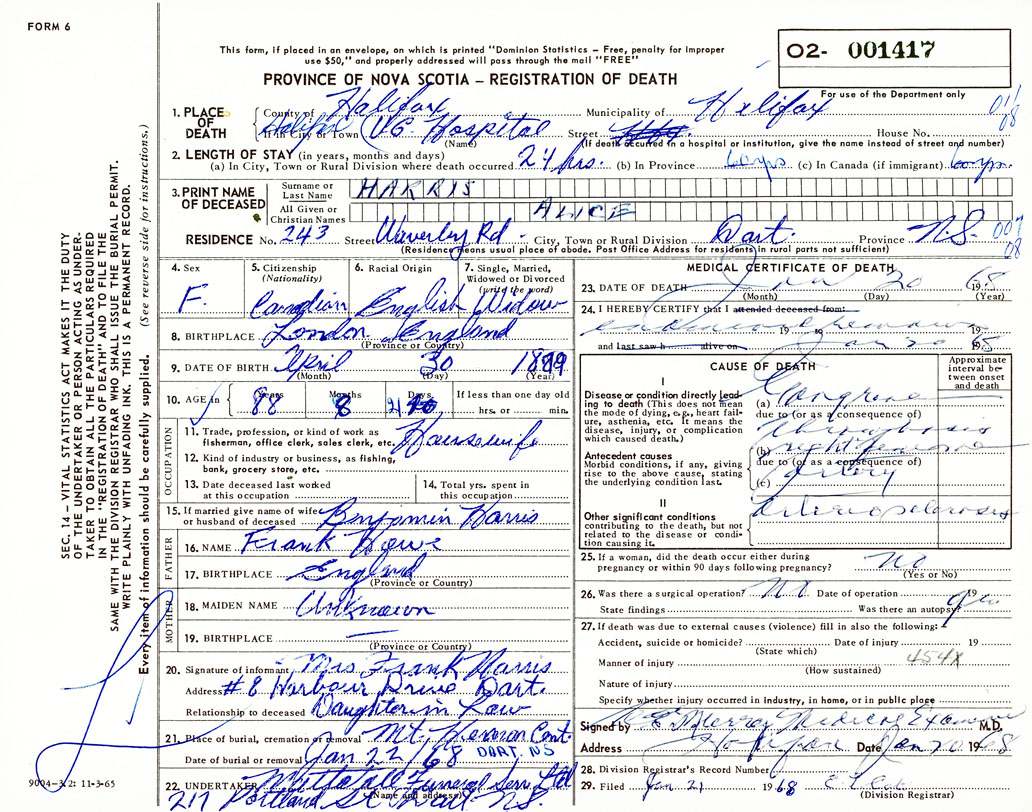 FORM 6
This form, if placed in an envelope, on which is printed "Dominion Statistics – Free, penalty for improper
use $50," and properly addressed will pass through the mail "FREE"
PROVINCE OF NOVA SCOTIA – REGISTRATION OF DEATH
O2- 001417
For use of the Department only
011
08
1. PLACE OF DEATH
County of Halifax Municipality of Halifax
Halifax City or Town V.G. Hospital Street House No.
(Name) (If death occurred in a hospital or institution, give the name instead of street and number)
2. LENGTH OF STAY (in years, months and days)
(a) In City, Town or Rural Division where death occurred 24 hrs. (b) In Province 60 yrs (c) In Canada (if immigrant) 60 yrs.
3. PRINT NAME OF DECEASED
Surname or Last Name HARRIS
All Given or Christian Names ALICE
RESIDENCE No. 243 Street Waverley Rd. City, Town or Rural Division Dart. Province N.S. 007
08
(Residence means usual place of abode. Post Office Address for residents in rural parts not sufficient)
4. Sex F.
5. Citizenship (Nationality) Canadian
6. Racial Origin English
7. Single, Married, Widowed or Divorced (write the word) Widow
8. BIRTHPLACE London England
(Province or Country)
9. DATE OF BIRTH April 30 1879
(Month) (Day) (Year)
10. AGE in Years 88 Months 8 Days If less than one day old
hrs. or min.
OCCUPATION
11. Trade, profession or kind of work as fisherman, office clerk, sales clerk, etc. Housewife
12. Kind of industry or business, as fishing, bank, grocery store, etc.
13. Date deceased last worked at this occupation
14. Total yrs. spent in this occupation
15. If married give name of wife or husband of deceased Benjamin Harris
FATHER
16. NAME Frank Howe
17. BIRTHPLACE England
(Province or Country)
MOTHER
18. MAIDEN NAME Unknown
19. BIRTHPLACE —
(Province or Country)
20. Signature of informant Mrs Frank Harris
Address # 8 Harbour Drive Dart.
Relationship to deceased Daughter in Law
21. Place of burial, cremation or removal Mt. Hermon Cemt
Date of burial or removal Jan 22/68 DART. NS
22. UNDERTAKER Mattatall Funeral Serv. Ltd
(Name and address)
217 Portland St. Dart. N.S.
MEDICAL CERTIFICATE OF DEATH
23. DATE OF DEATH Jan 20 1968
(Month) (Day) (Year)
24. I HEREBY CERTIFY that I attended deceased from:
19 to 19
and last saw h alive on Jan 20 1968
CAUSE OF DEATH
Approximate interval between onset and death
I
Disease or condition directly leading to death (This does not mean the mode of dying, e.g., heart failure, asthenia, etc. It means the disease, injury, or complication which caused death.)
(a) Gangrene
due to (or as a consequence of
Thrombosis
Antecedent causes
Morbid conditions, if any, giving rise to the above cause, stating the underlying condition last.
(b) right femoral
due to (or as a consequence of
artery
(c)
II
Other significant conditions contributing to the death, but not related to the disease or condition causing it.
Arteriosclerosis
25. If a woman, did the death occur either during pregnancy or within 90 days following pregnancy? No
(Yes or No)
26. Was there a surgical operation? No Date of operation 19
State findings Was there an autopsy?
27. If death was due to external causes (violence) fill in also the following:
Accident, suicide or homicide? Date of injury 19
(State which)
Manner of injury 454X
(How sustained)
Nature of injury
Specify whether injury occurred in industry, in home, or in public place
Signed by Medical Examiner M.D.
Address Halifax Date Jan 20 1968
28. Division Registrar's Record Number
29. Filed Jan 21 1968
(Division Registrar)
SEC. 14 – VITAL STATISTICS ACT MAKES IT THE DUTY
OF THE UNDERTAKER OR PERSON ACTING AS UNDER-
TAKER TO OBTAIN ALL THE PARTICULARS REQUIRED
IN THE "REGISTRATION OF DEATH" AND TO FILE THE
SAME WITH THE DIVISION REGISTRAR WHO SHALL ISSUE THE BURIAL PERMIT.
WRITE PLAINLY WITH UNFADING INK. THIS IS A PERMANENT RECORD.
Every item of information should be carefully supplied. (See reverse side for instructions.)
9004-3.2: 11-3-65